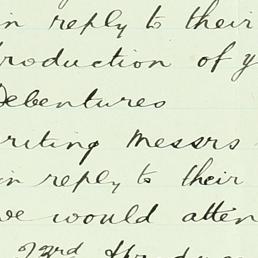 in reply to their
production of y
Debentures
writing Messrs
in reply to their
we would atten
23rd